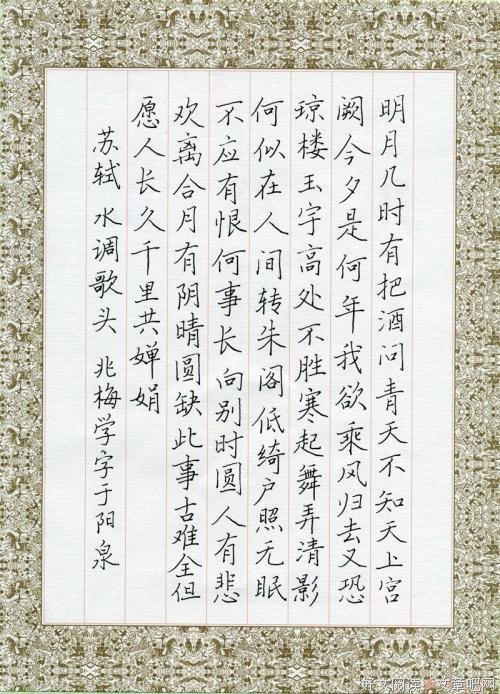 明月几时有把酒问青天不知天上宫
阙今夕是何年我欲乘风归去又恐
琼楼玉宇高处不胜寒起舞弄清影
何似在人间转朱阁低绮户照无眠
不应有恨何事长向别时圆人有悲
欢离合月有阴晴圆缺此事古难全但
愿人长久千里共婵娟
苏轼 水调歌头 兆梅学字于阳泉
好文阅读 文章吧网